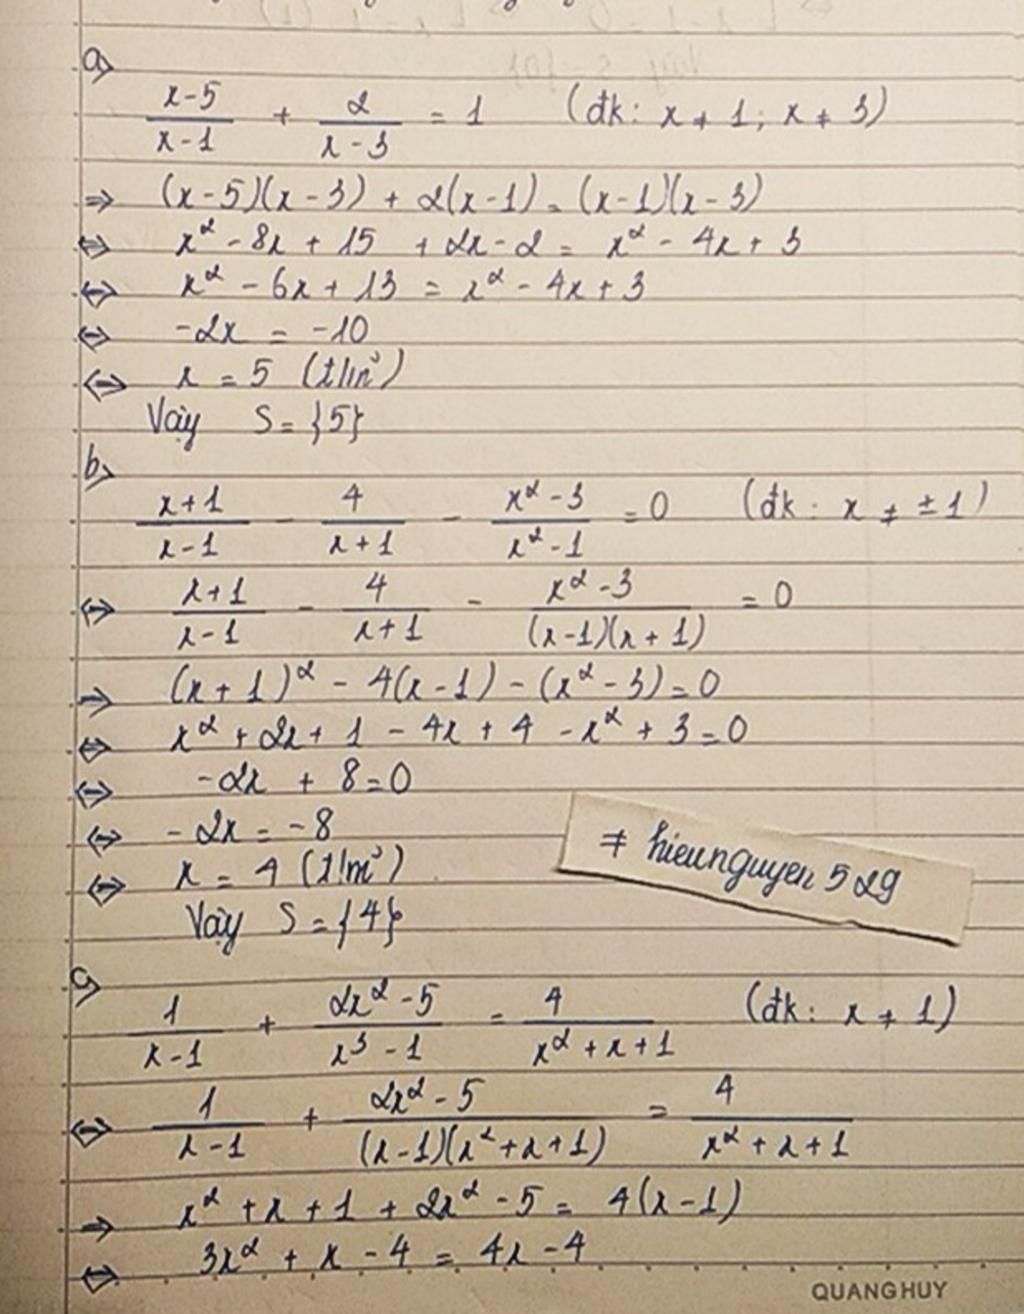 a>
x-5/x-1 + 2/x-3 = 1 (đk: x ≠ 1; x ≠ 3)
⇒ (x-5)(x-3) + 2(x-1) = (x-1)(x-3)
⇔ x² - 8x + 15 + 2x - 2 = x² - 4x + 3
⇔ x² - 6x + 13 = x² - 4x + 3
⇔ -2x = -10
⇔ x = 5 (t/m²)
Vậy S = {5}
b>
x+1/x-1 - 4/x+1 - x²-3/x²-1 = 0 (đk: x ≠ ±1)
⇔ x+1/x-1 - 4/x+1 - x²-3/(x-1)(x+1) = 0
⇒ (x+1)² - 4(x-1) - (x²-3) = 0
⇔ x² + 2x + 1 - 4x + 4 - x² + 3 = 0
⇔ -2x + 8 = 0
⇔ -2x = -8
⇔ x = 4 (t/m²)
Vậy S = {4}
≠ hieunguyen529
c>
1/x-1 + 2x²-5/x³-1 = 4/x²+x+1 (đk: x ≠ 1)
⇔ 1/x-1 + 2x²-5/(x-1)(x²+x+1) = 4/x²+x+1
⇒ x² + x + 1 + 2x² - 5 = 4(x-1)
⇔ 3x² + x - 4 = 4x - 4
QUANG HUY